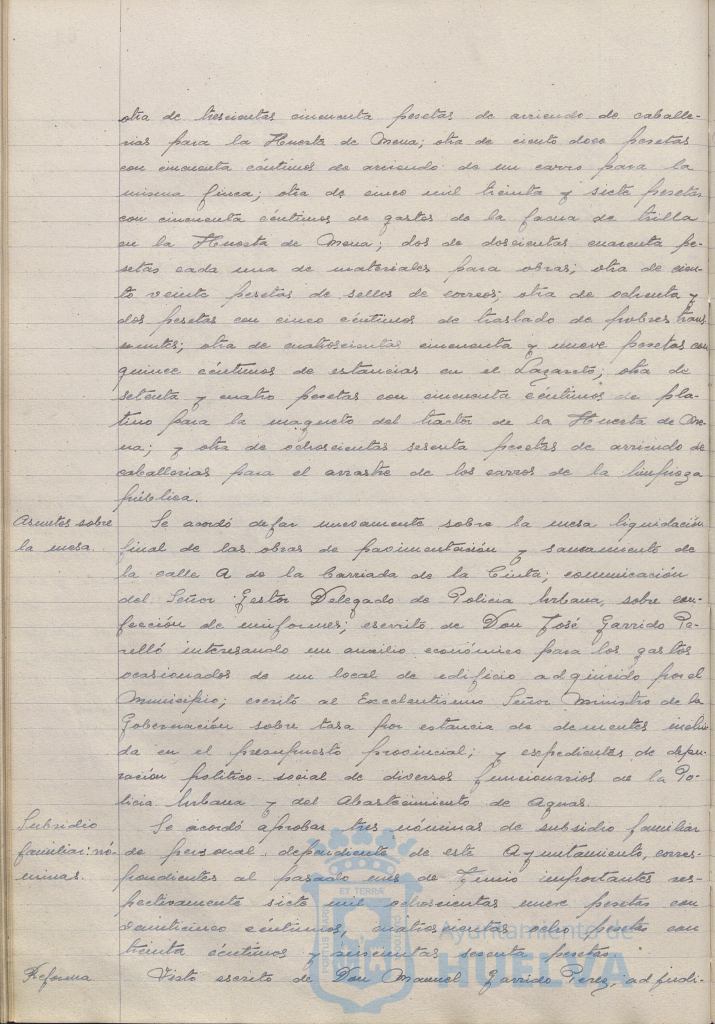 otra de trescientas cincuenta pesetas de arriendo de caballe-
rias para la Huerta de Mena; otra de ciento doce pesetas
con cincuenta céntimos de arriendo de un carro para la
misma finca; otra de cinco mil treinta y siete pesetas
con cincuenta céntimos de gastos de la faena de trilla
en la Huerta de Mena; dos de doscientas cuarenta pe-
setas cada una de materiales para obras; otra de cien-
to veinte pesetas de sellos de correos; otra de ochenta y
dos pesetas con cinco céntimos de traslado de pobres trans
euntes; otra de cuatroscientas cincuenta y nueve pesetas con
quince céntimos de estancias en el Lazareto; otra de
setenta y cuatro pesetas con cincuenta céntimos de pla-
tino para la magneto del tractor de la Huerta de Me-
na; y otra de ochoscientas sesenta pesetas de arriendo de
caballerias para el arrastre de los carros de la limpieza
pública.
Asuntos sobre
la mesa.
Se acordó dejar nuevamente sobre la mesa liquidación
final de las obras de pavimentación y saneamiento de
la calle A de la Barriada de la Cinta; comunicación
del Señor Gestor Delegado de Policia Urbana, sobre con-
fección de uniformes; escrito de Don José Garrido Pe-
relló interesando un auxilio económico para los gastos
ocasionados de un local de edificio adquirido por el
Municipio; escrito al Excelentisimo Señor Ministro de la
Gobernación sobre tasa por estancia de dementes inclui-
da en el presupuesto provincial; y expedientes de depu-
ración politico-social de diversos funcionarios de la Po-
licia Urbana y del Abastecimiento de Aguas.
Subsidio
familiar: nó-
minas.
Se acordó aprobar tres nóminas de subsidio familiar
de personal dependiente de este Ayuntamiento, corres-
pondientes al pasado mes de Junio importantes res-
pectivamente siete mil ochoscientas nueve pesetas con
veinticinco céntimos, cuatroscientas ocho pesetas con
treinta céntimos y sesenta pesetas.
Reforma
Visto escrito de Don Manuel Garrido Perez, adjudi-
PORTUS MARIS ET TERRÆ CUSTODIA
Ayuntamiento de
HUELVA